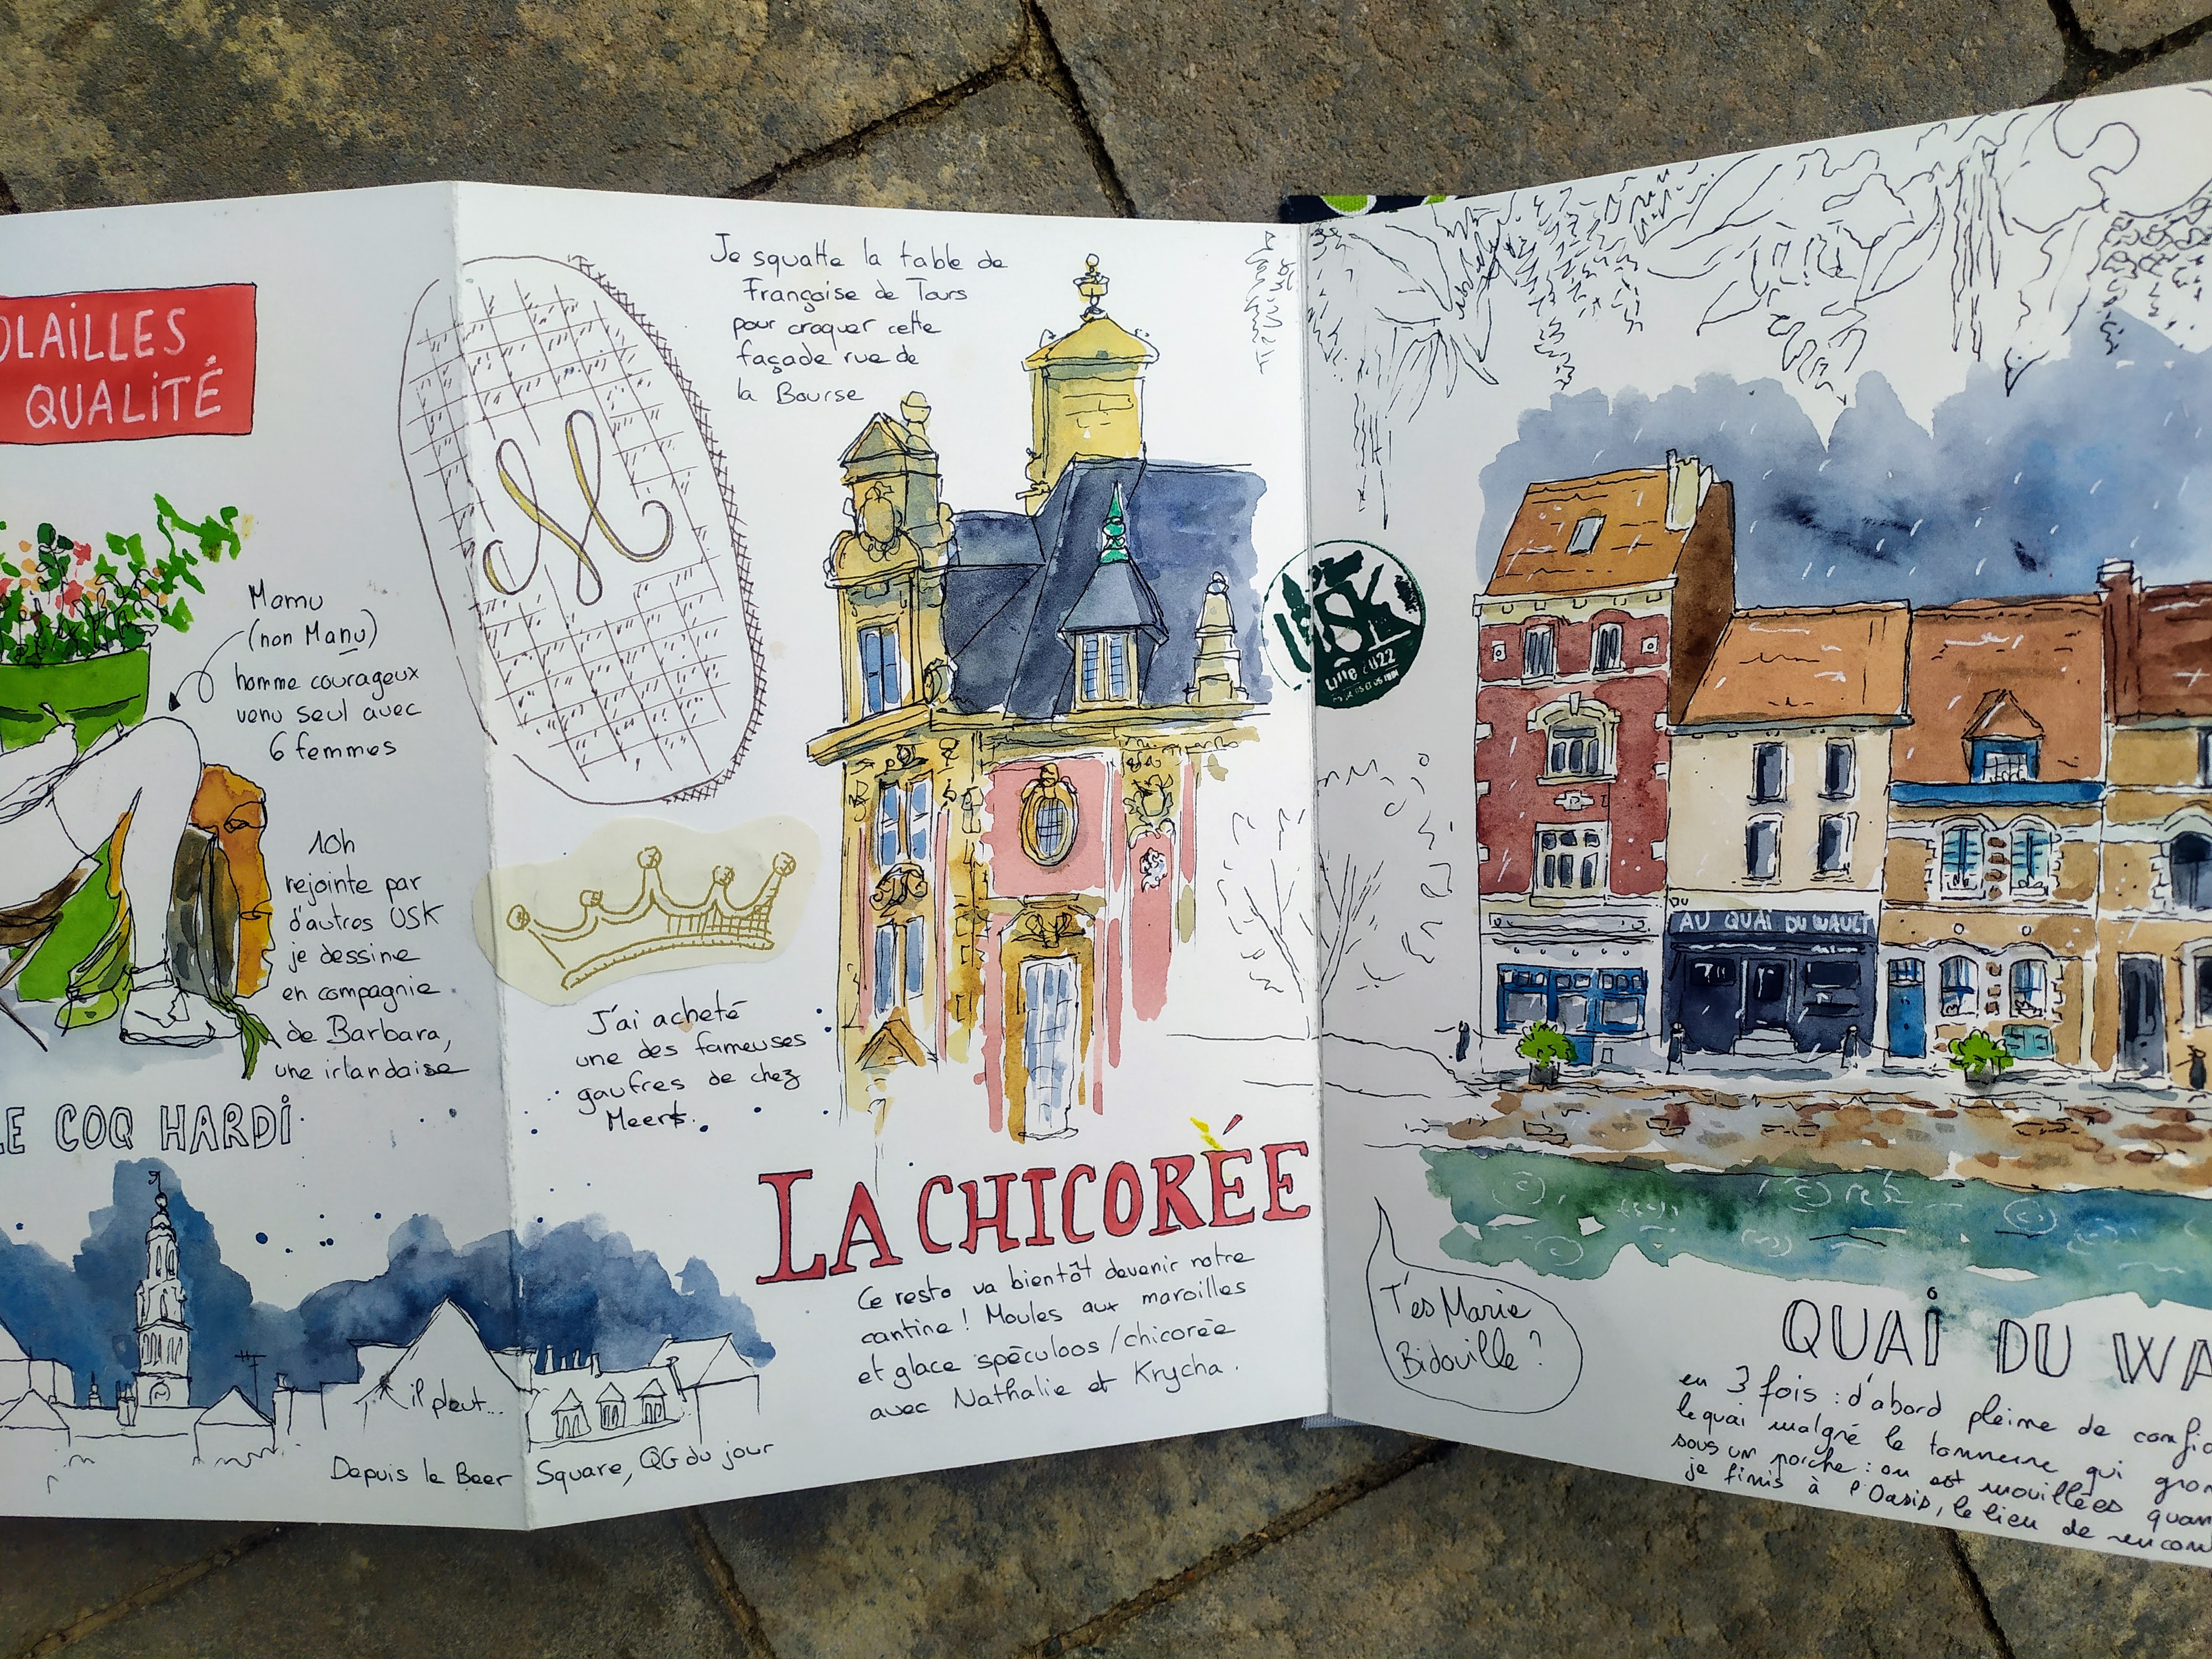 OLAILLES
QUALITÉ
Momu
(non Manu)
homme courageux
venu seul avec
6 femmes
10h
rejointe par
d'autres USK
je dessine
en compagnie
de Barbara,
une irlandaise
LE COQ HARDI
il pleut...
Depuis le Beer Square, QG du jour
Je squatte la table de
Françoise de Tours
pour croquer cette
façade rue de
la Bourse
M
J'ai acheté
une des fameuses
gaufres de chez
Meert.
LA CHICORÉE
Ce resto va bientôt devenir notre
cantine ! Moules aux maroilles
et glace spéculoos / chicorée
avec Nathalie et Krycha.
USK
Lille 2022
AU QUAI DU WAULT
T'es Marie
Bidouille ?
QUAI DU WA
en 3 fois : d'abord pleine de confi
le quai malgré le tonnerre qui gron
sous un porche : on est mouillées quan
je finis à l'Oasis, le lieu de rencon